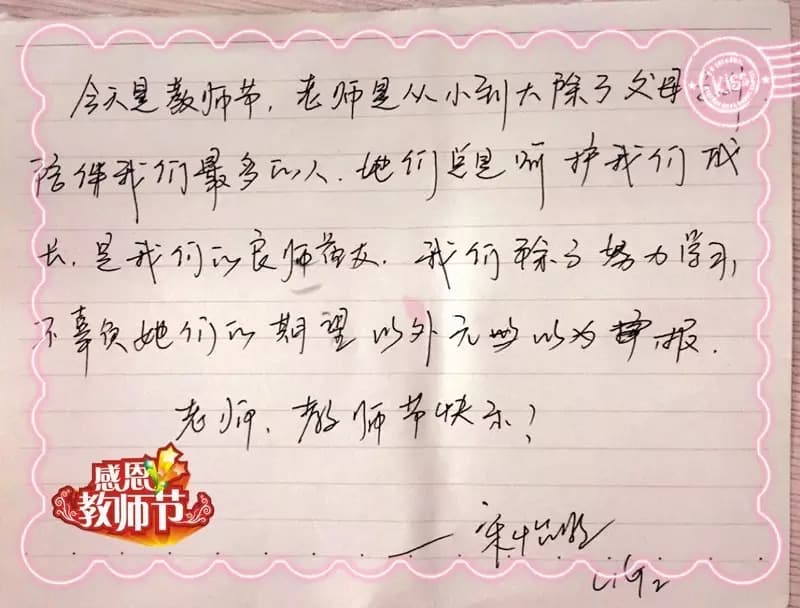 今天是教师节,老师是从小到大除了父母
陪伴我们最多的人.她们总是呵护我们成
长,是我们的良师益友.我们除了努力学习,
不辜负她们的期望以外无以为报.
老师,教师节快乐!
感恩
教师节
KISS